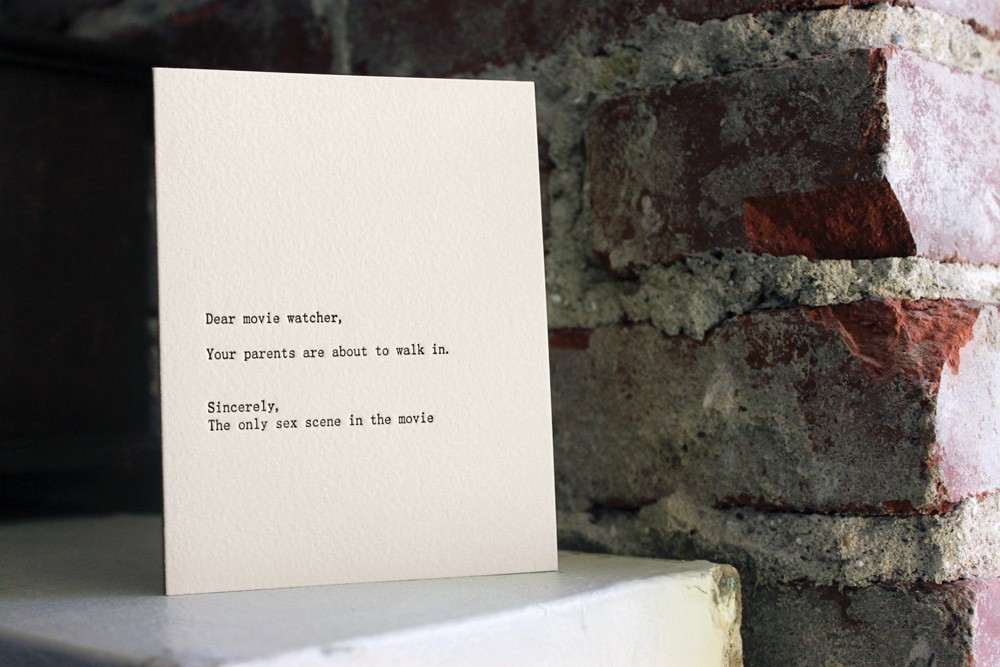 Dear movie watcher,
Your parents are about to walk in.
Sincerely,
The only sex scene in the movie